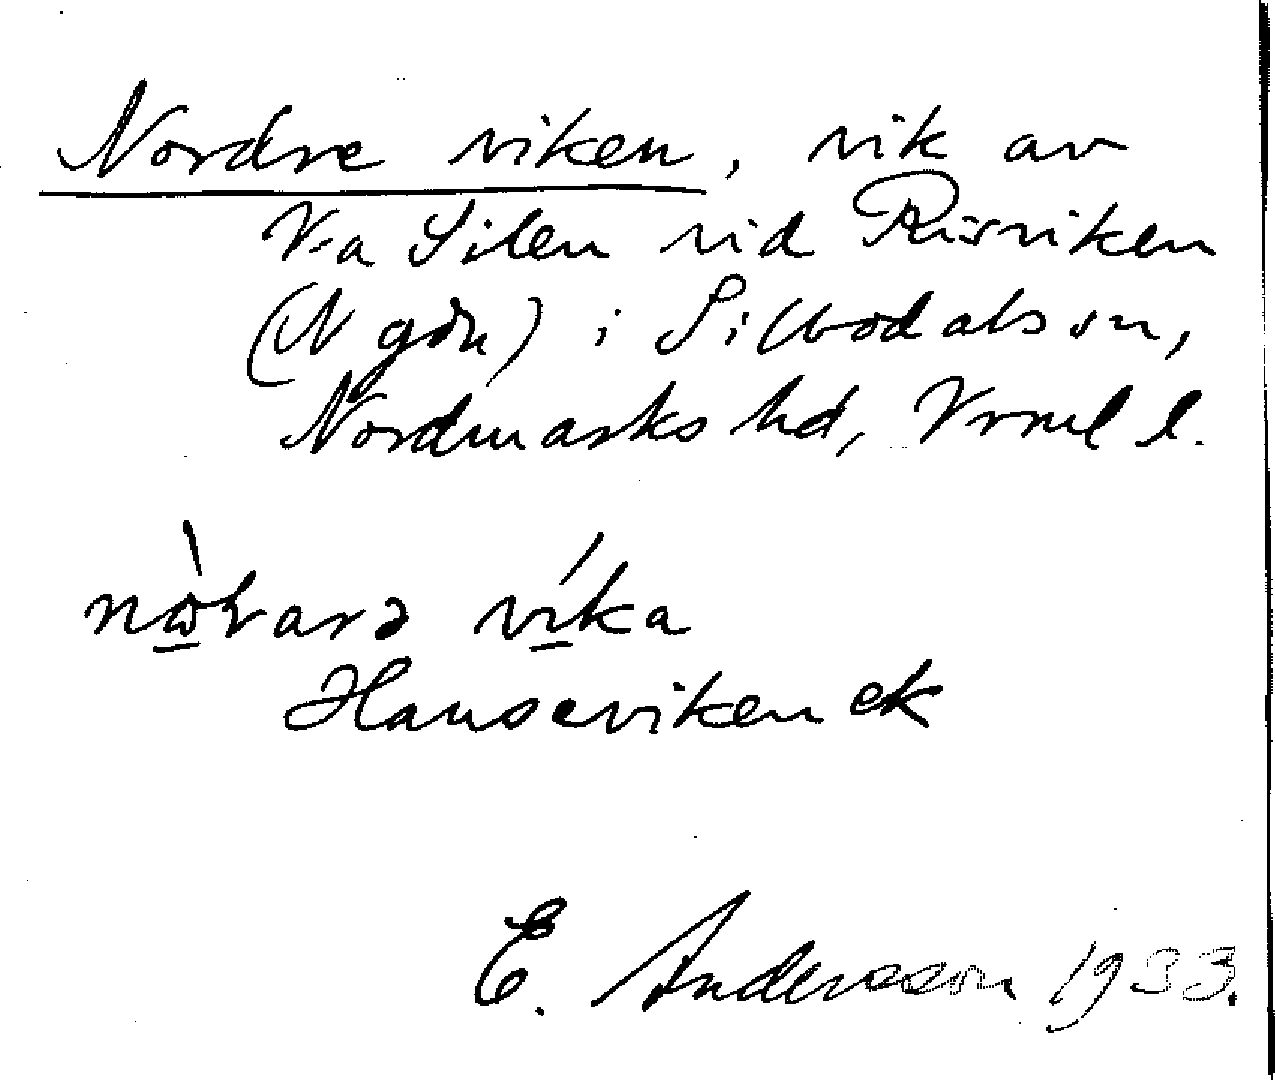 Nordre viken, vik av
V-a Silen vid Risviken
(N gdn) i Silbodals sn,
Nordmarks hd, Vrml l.
víka
Hanseviken ek
E. Andersson 1933.